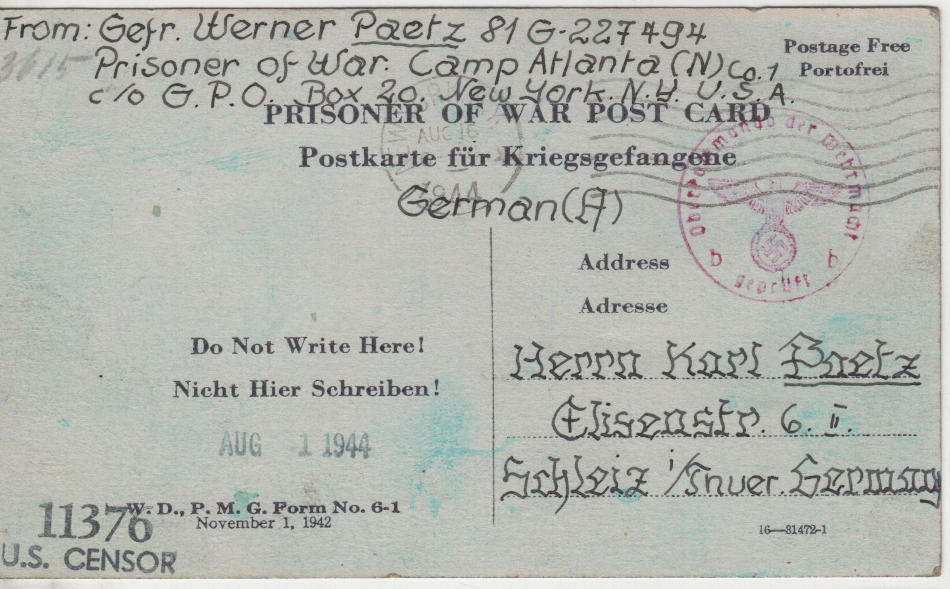 From: Gefr. Werner Paetz 81 G-227494
3615
Prisoner of War. Camp Atlanta (N) Co. 1
c/o G.P.O. Box 20. New York. N.Y. U.S.A.
Postage Free
Portofrei
PRISONER OF WAR POST CARD
AUG 16
1944
Postkarte für Kriegsgefangene
German (A)
Oberkommando der Wehrmacht
b b
geprüft
Address
Adresse
Do Not Write Here!
Nicht Hier Schreiben!
AUG 1 1944
Herrn Karl Paetz
Elisenstr. 6. II.
Schleiz i/Thuer. Germany
W. D., P. M. G. Form No. 6-1
November 1, 1942
11376
U.S. CENSOR
16—31472-1